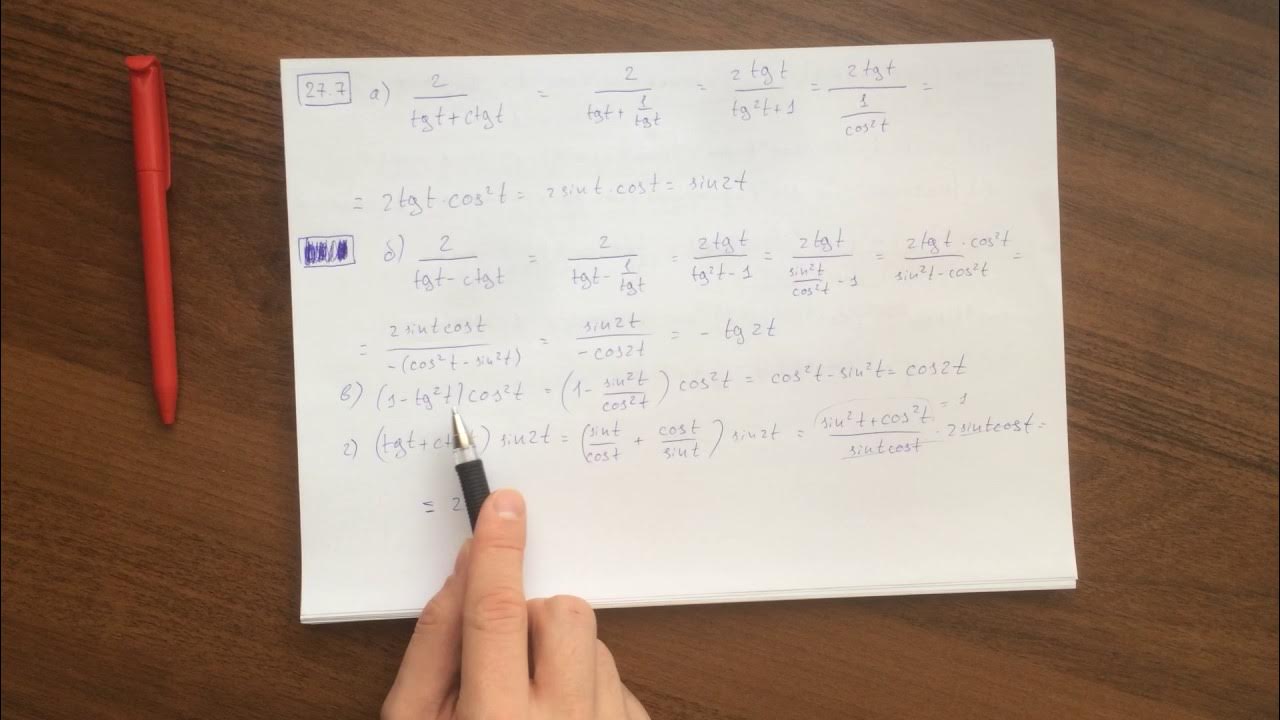 27.7 а) 2/(tgt + ctgt) = 2/(tgt + 1/tgt) = 2tgt/(tg²t + 1) = 2tgt/(1/cos²t) =
= 2tgt · cos²t = 2sint · cost = sin2t
б) 2/(tgt - ctgt) = 2/(tgt - 1/tgt) = 2tgt/(tg²t - 1) = 2tgt/(sin²t/cos²t - 1) = 2tgt · cos²t/(sin²t - cos²t) =
= 2sintcost/(-(cos²t - sin²t)) = sin2t/(-cos2t) = - tg2t
в) (1 - tg²t)cos²t = (1 - sin²t/cos²t) cos²t = cos²t - sin²t = cos2t
г) (tgt + c) sin2t = (sint/cost + cost/sint) sin2t = (sin²t + cos²t)/(sintcost) · 2sintcost = = 1
= 2